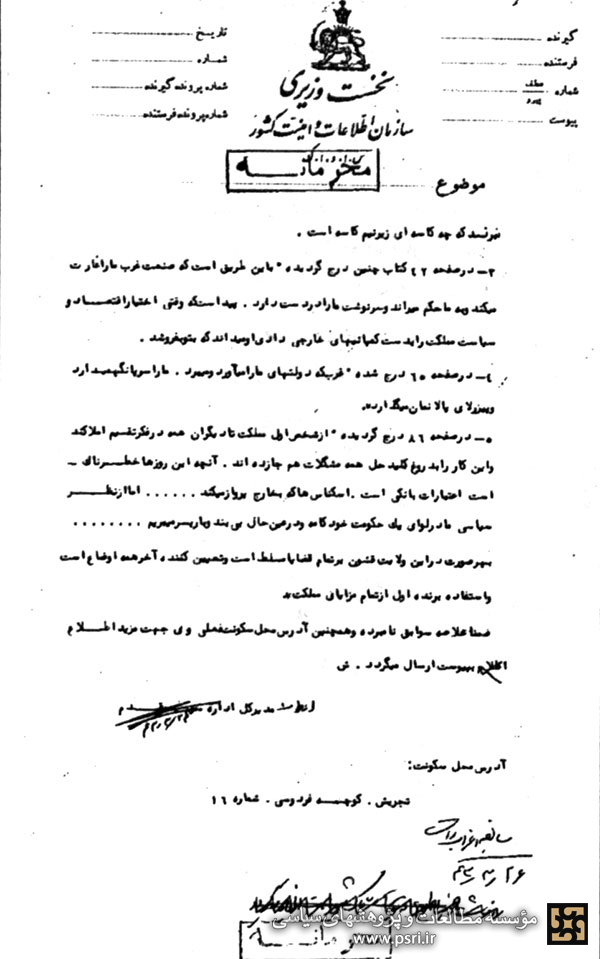 گیرنده
فرستنده
شماره
پیوست
تاریخ
شماره
شماره پرونده گیرنده
شماره پرونده فرستنده
نخست وزیری
سازمان اطلاعات و امنیت کشور
محرمانه
موضوع
نپرسند که چه کاسه ای زیرنیم کاسه است .
۳- در صفحه ۴۲ کتاب چنین درج گردیده " باین طریق است که صنعت غرب ما را غارت
میکند و به ما حکم میراند و سرنوشت ما را در دست دارد . پیداست که وقتی اختیار اقتصاد و
سیاست مملکت را بدست کمپانیهای خارجی دادی او میداند که بتو بفروشد .
۴- در صفحه ۶۵ درج شده " غرب که دولتهای ما را میآورد و میبرد . ما را سرپا نگهمیدارد
و بیزولای بالا نمان میگذارد ".
۵- در صفحه ۸۶ درج گردیده " از شخص اول مملکت تا دیگران همه در فکر تقسیم املاکند
و این کار را بدروغ کلید حل همه مشگلات هم جازده اند . آنچه این روزها خطرناک -
است اعتبارات بانکی است . اسکناس هاکه بخارج پرواز میکند . . . . . . اما از نظر
سیاسی ما در لوای یك حکومت خودکامه و در عین حال بی بند و بار بسر میبریم . . . . . . . .
بهر صورت در این ولایت قشون بر تمام قضایا مسلط است و تعیین کننده آخر همه اوضاع است
و استفاده برنده اول از تمام مزایای مملکت "
ضمنا خلاصه سوابق نامبرده و همچنین آدرس محل سکونت فعلی وی جهت مزید اطلاع
به پیوست ارسال میگردد . ش
مدیرکل اداره
آدرس محل سکونت:
تجریش . کوچه فردوسی . شماره ۱۶
محرمانه
مؤسسه مطالعات و پژوهشهای سیاسی
www.psri.ir